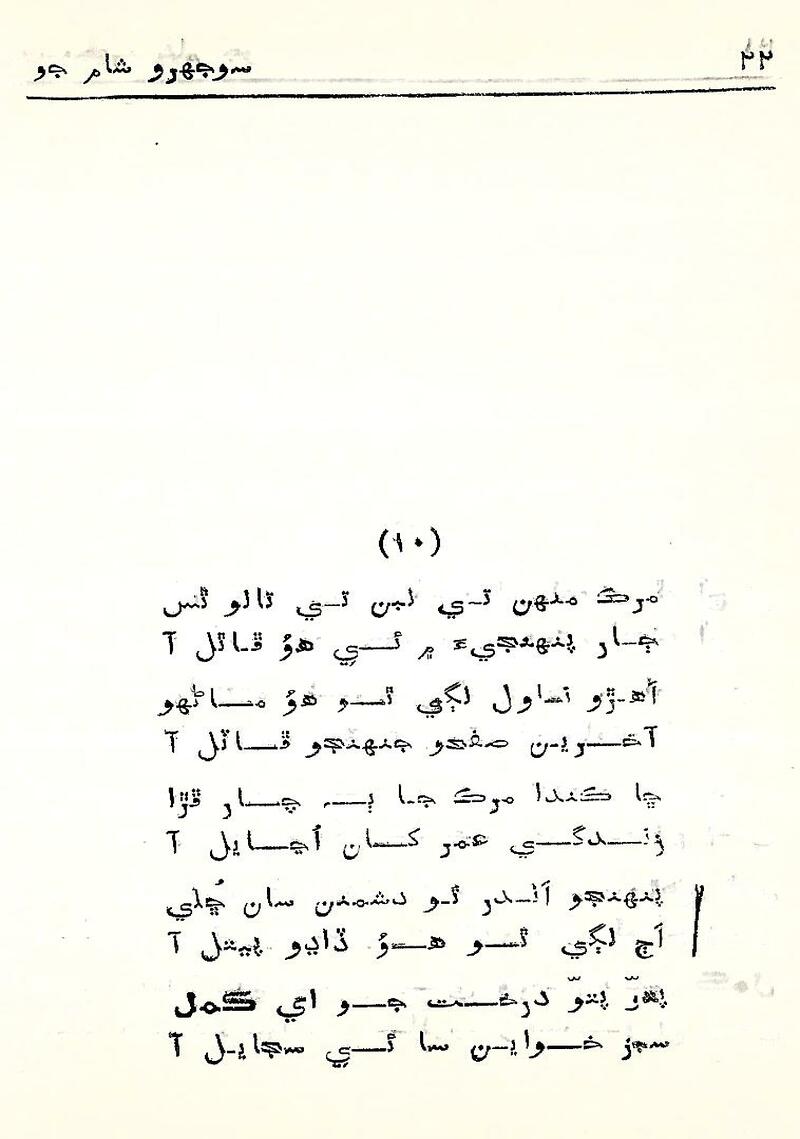 ۲۲
سوجهرو شام جو
(۱۰)
مرڪ منهن تي لبن تي تالو ٿس
ڄار پنهنجيءَ ۾ ئي هوُ ڦاٿل آ
اَهڙو ناول لڳي ٿو هوُ ماڻهو
آخرين صفحو جنهنجو ڦاٽل آ
ڇا ڪندا مرڪ جا ٻہ چار ڦڙا
زندگي عمر کان اُڃايل آ
پنهنجو اَندر ٿو دشمنن سان کُلي
اَڄ لڳي ٿو هوُ ڏاڍو پيتل آ
پنوّ پنوّ درخت جو اي ڪمل
سبز خوابن سا ئي سجايل آ